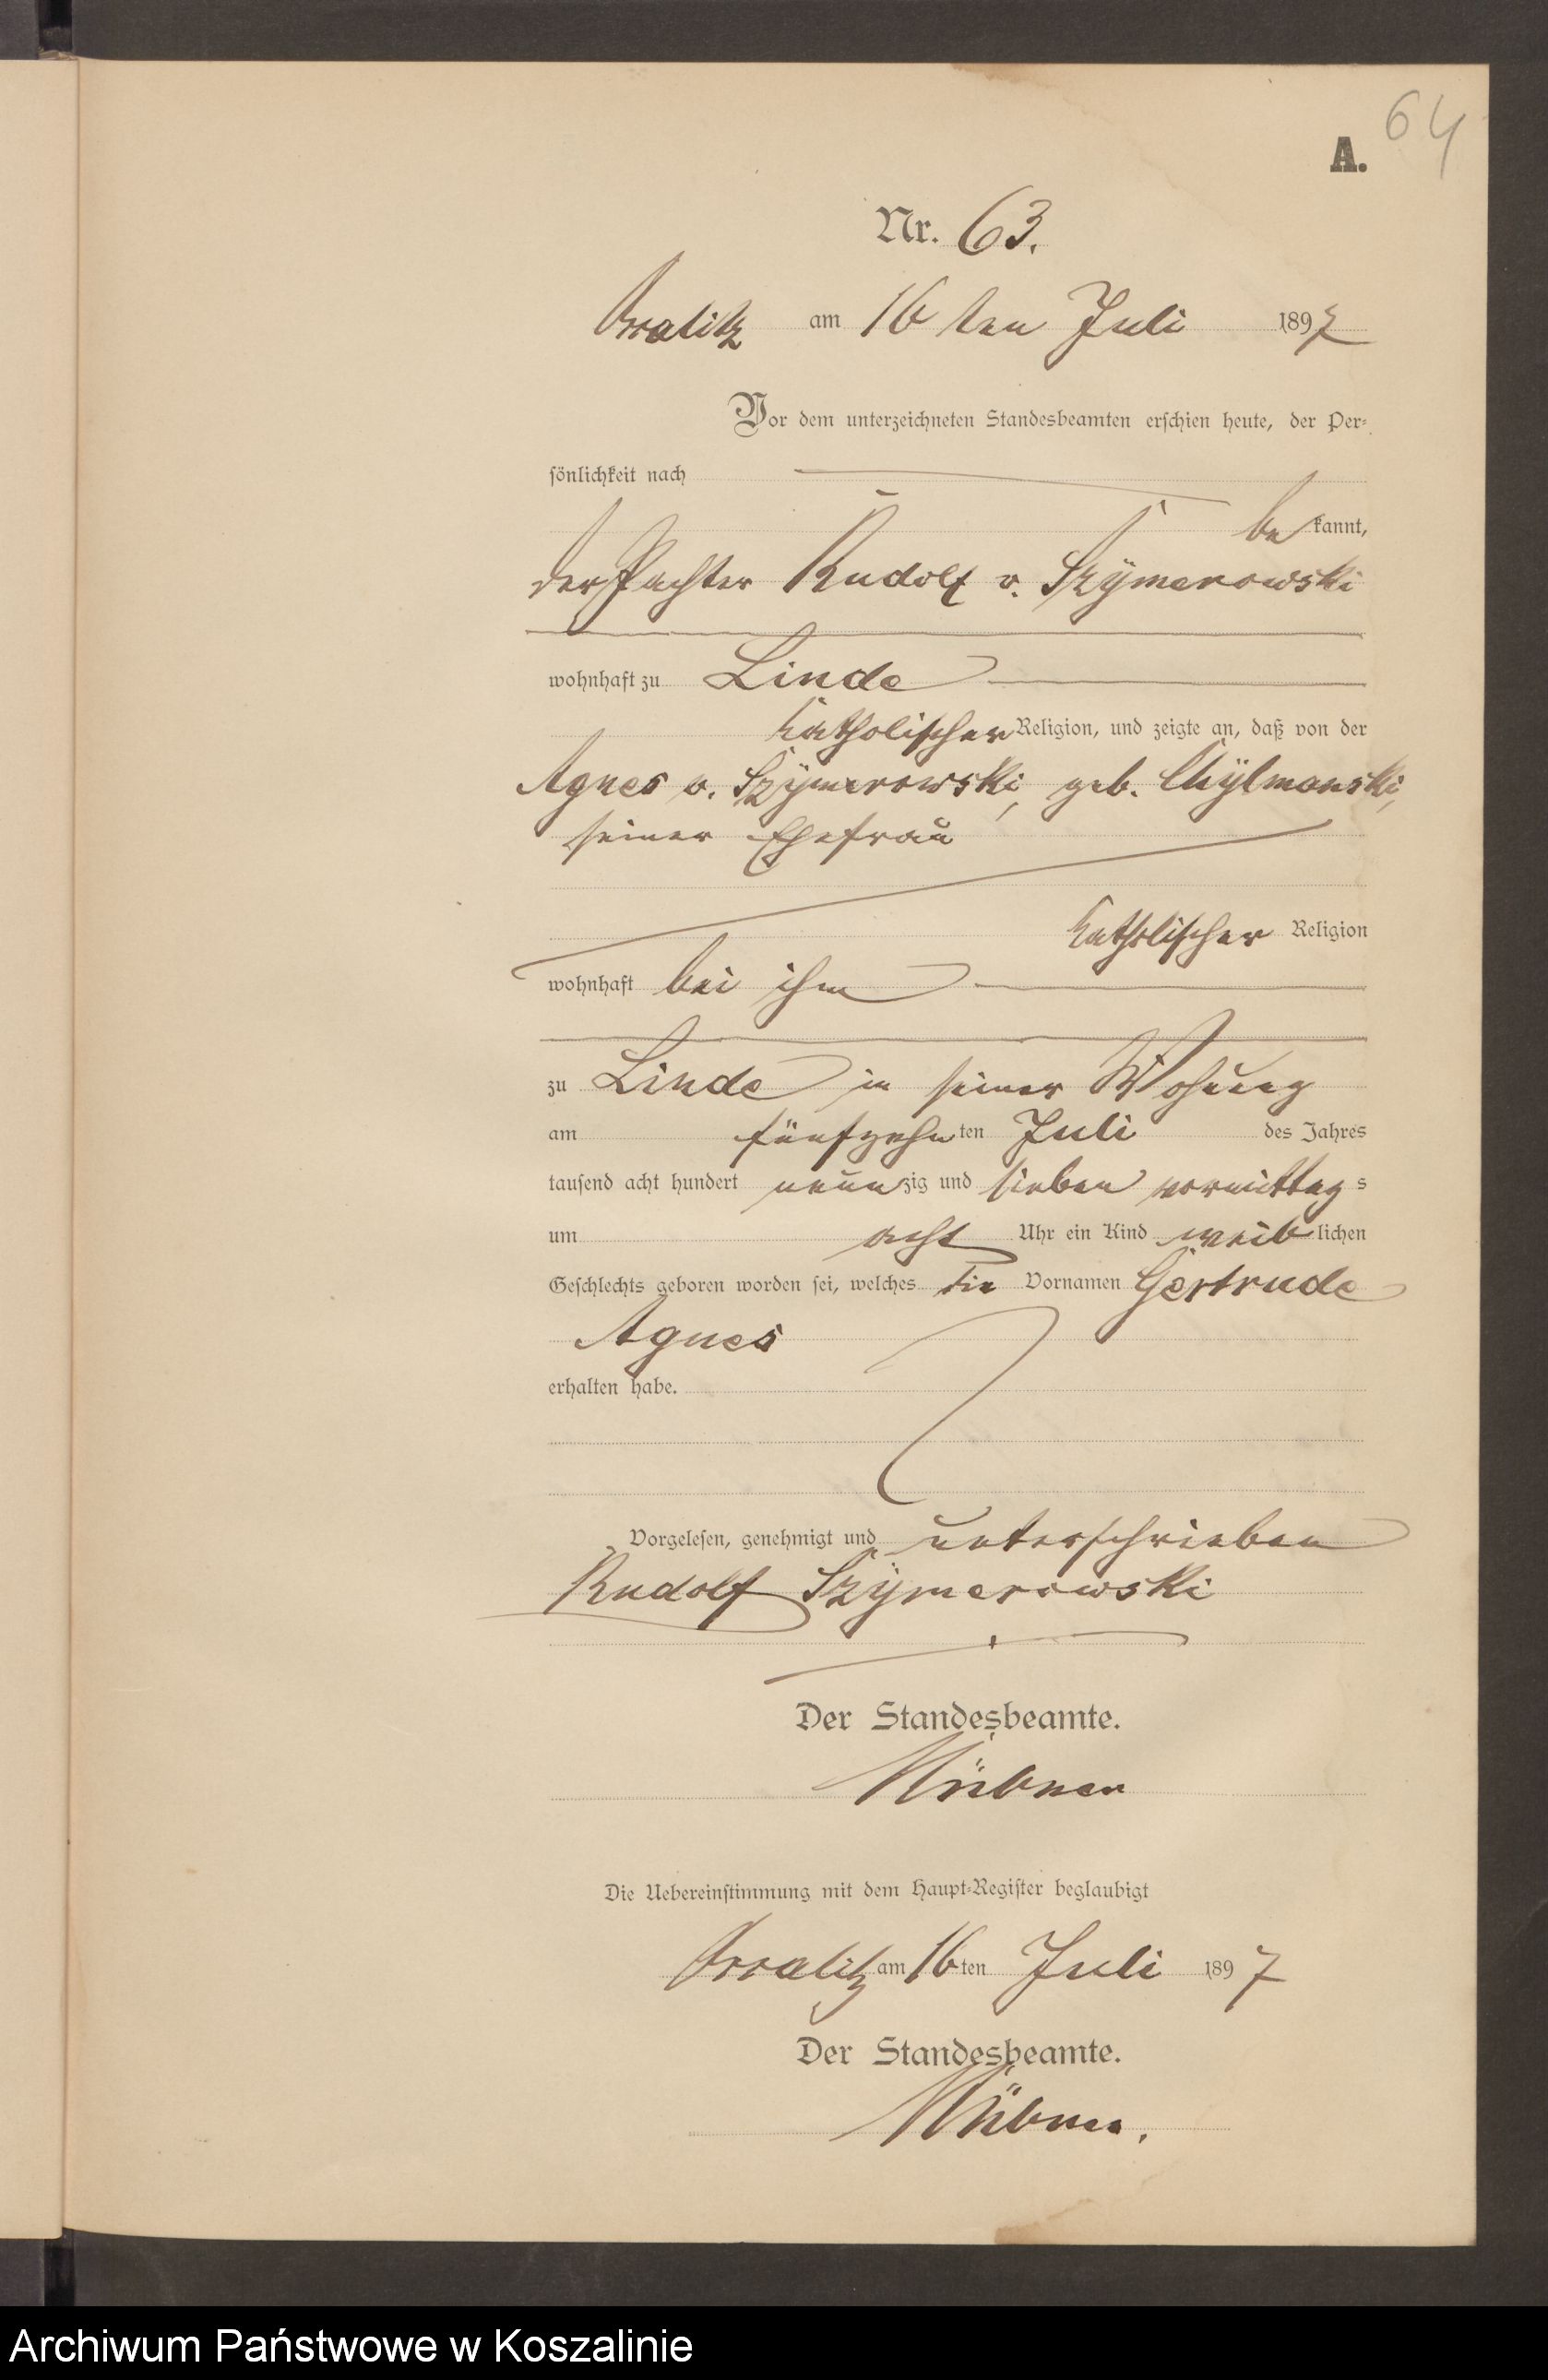 64
A.
Nr. 63.
am 16 ten Juli 1897
Vor dem unterzeichneten Standesbeamten erschien heute, der Per-
sönlichkeit nach
be kannt,
der Pachter Rudolf v. Szÿmerowski
wohnhaft zu Linde
katholischer Religion, und zeigte an, daß von der
Agnes v. Szÿmerowski, geb.
seiner Ehefrau
katholischer Religion
wohnhaft bei ihm
zu Linde in seiner Wohnung
am fünfzehn ten Juli des Jahres
tausend acht hundert neun zig und sieben vormittag s
um acht Uhr ein Kind weib lichen
Geschlechts geboren worden sei, welches die Vornamen Gertrude
Agnes
erhalten habe.
Vorgelesen, genehmigt und unterschrieben
Rudolf Szÿmerowski
Der Standesbeamte.
Die Uebereinstimmung mit dem Haupt-Register beglaubigt
am 16 ten Juli 1897
Der Standesbeamte.
Archiwum Państwowe w Koszalinie